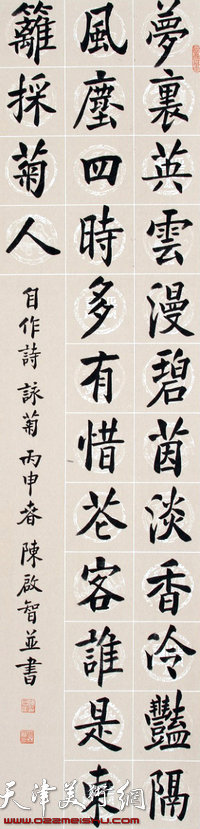 夢裏英雲漫碧茵淡香冷豔隔
風塵四時多有惜花客誰是東
籬採菊人
自作詩詠菊丙申春陳啟智並書
天津美術網
www.022meishu.com